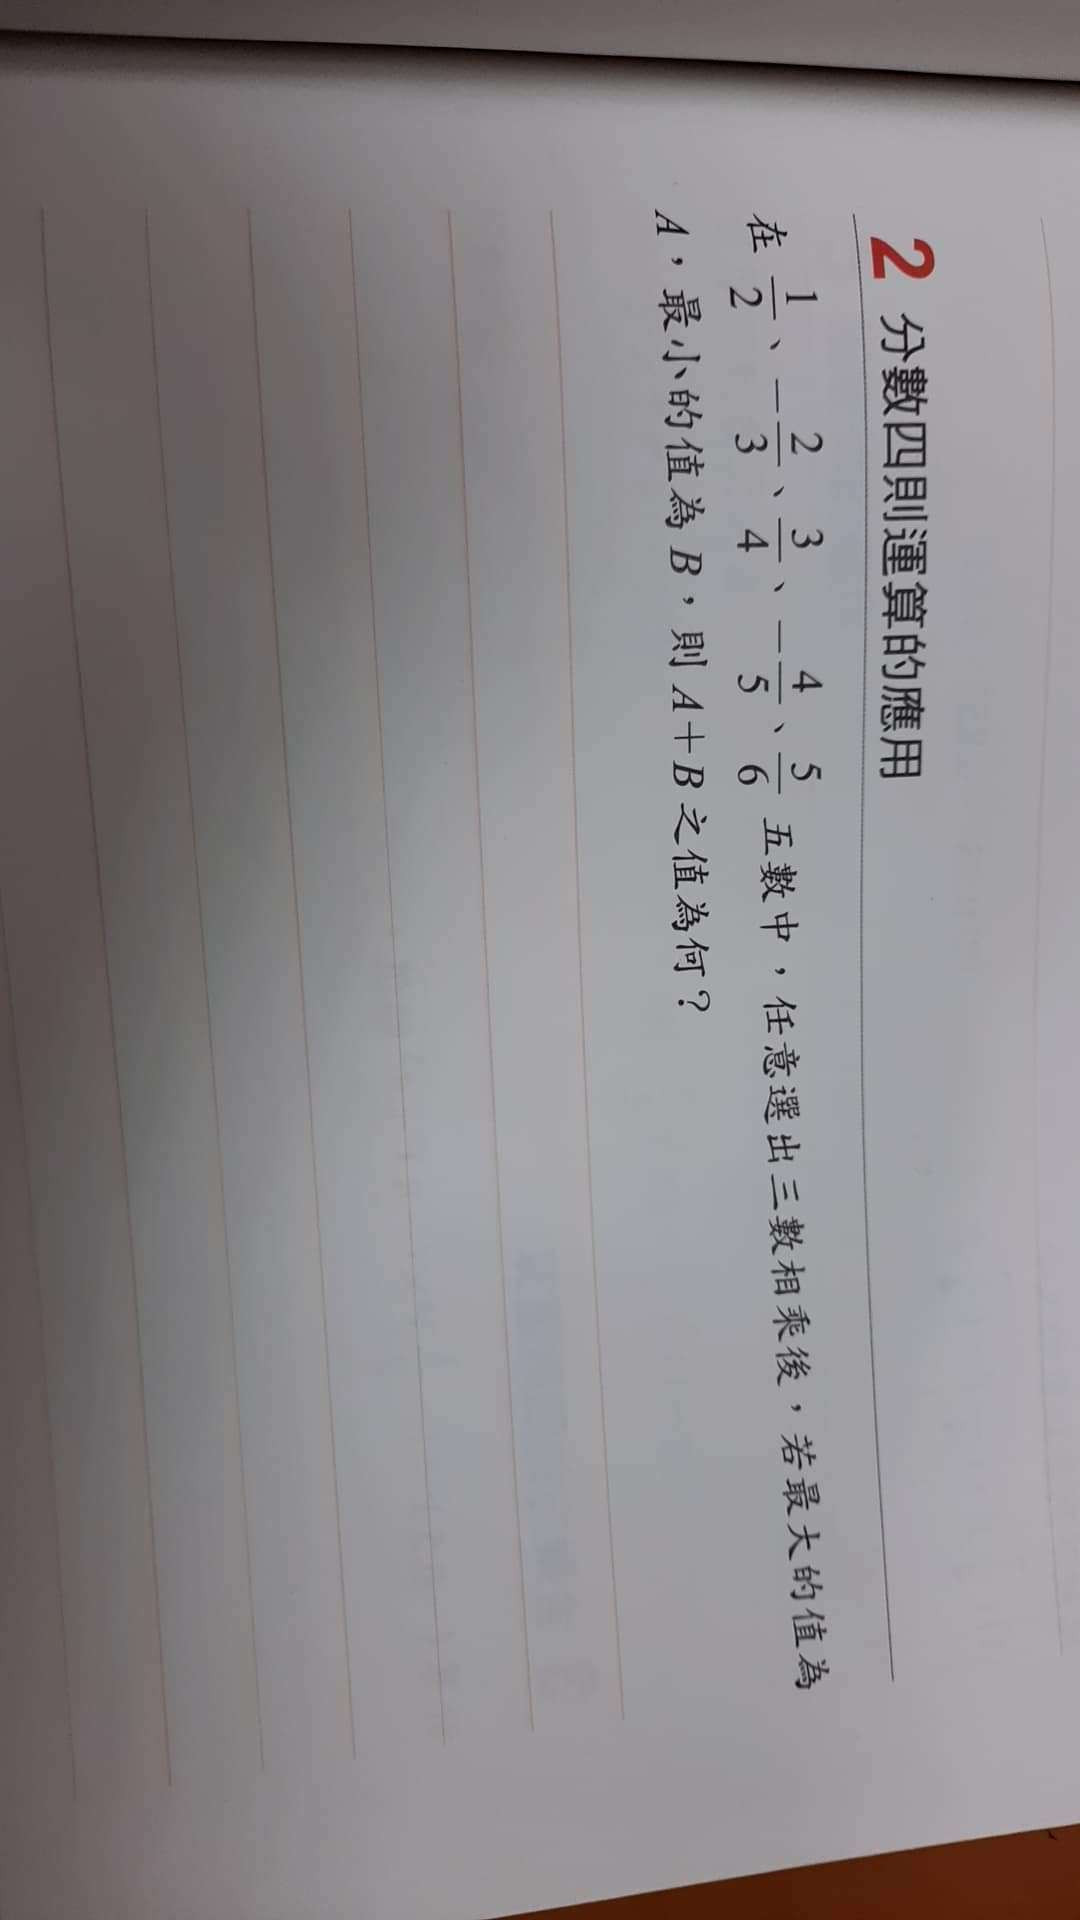 2 分數四則運算的應用
在 1/2、−2/3、3/4、−4/5、5/6 五數中，任意選出三數相乘後，若最大的值為
A，最小的值為 B，則 A＋B 之值為何？